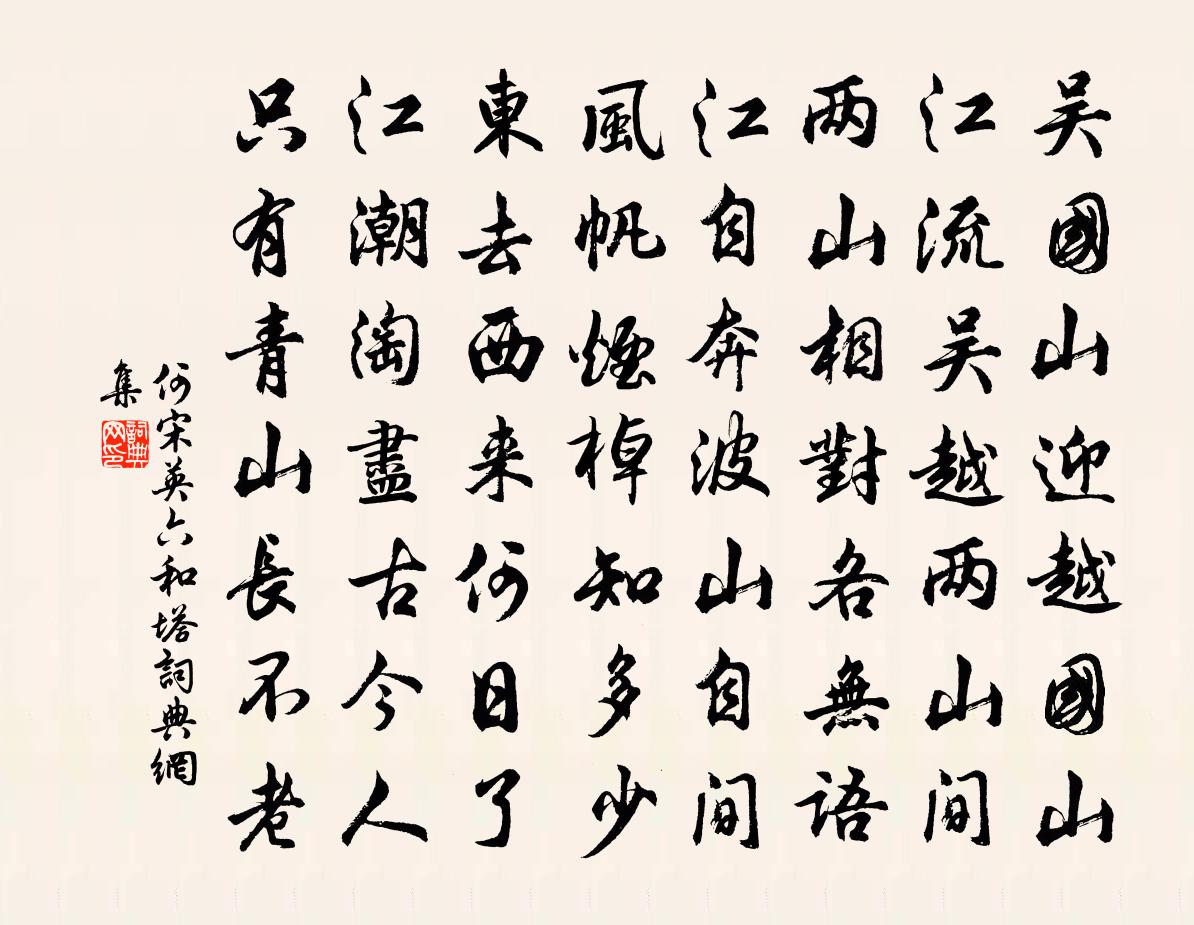 吴國山迎越國山
江流吴越两山间
两山相對各無語
江自奔波山自间
風帆煙棹知多少
東去西来何日了
江潮淘盡古今人
只有青山長不老
何宋英六和塔詞典網
集
詞典
网印